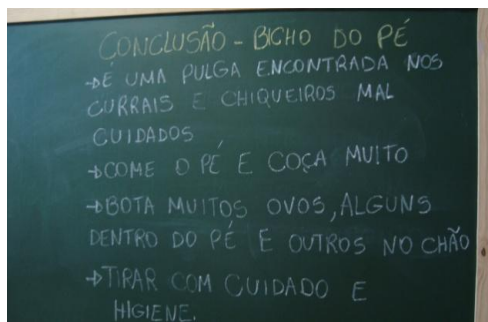 CONCLUSÃO - BICHO DO PÉ
→É UMA PULGA ENCONTRADA NOS
CURRAIS E CHIQUEIROS MAL
CUIDADOS
→COME O PÉ E COÇA MUITO
→BOTA MUITOS OVOS, ALGUNS
DENTRO DO PÉ E OUTROS NO CHÃO
→TIRAR COM CUIDADO E
HIGIENE.